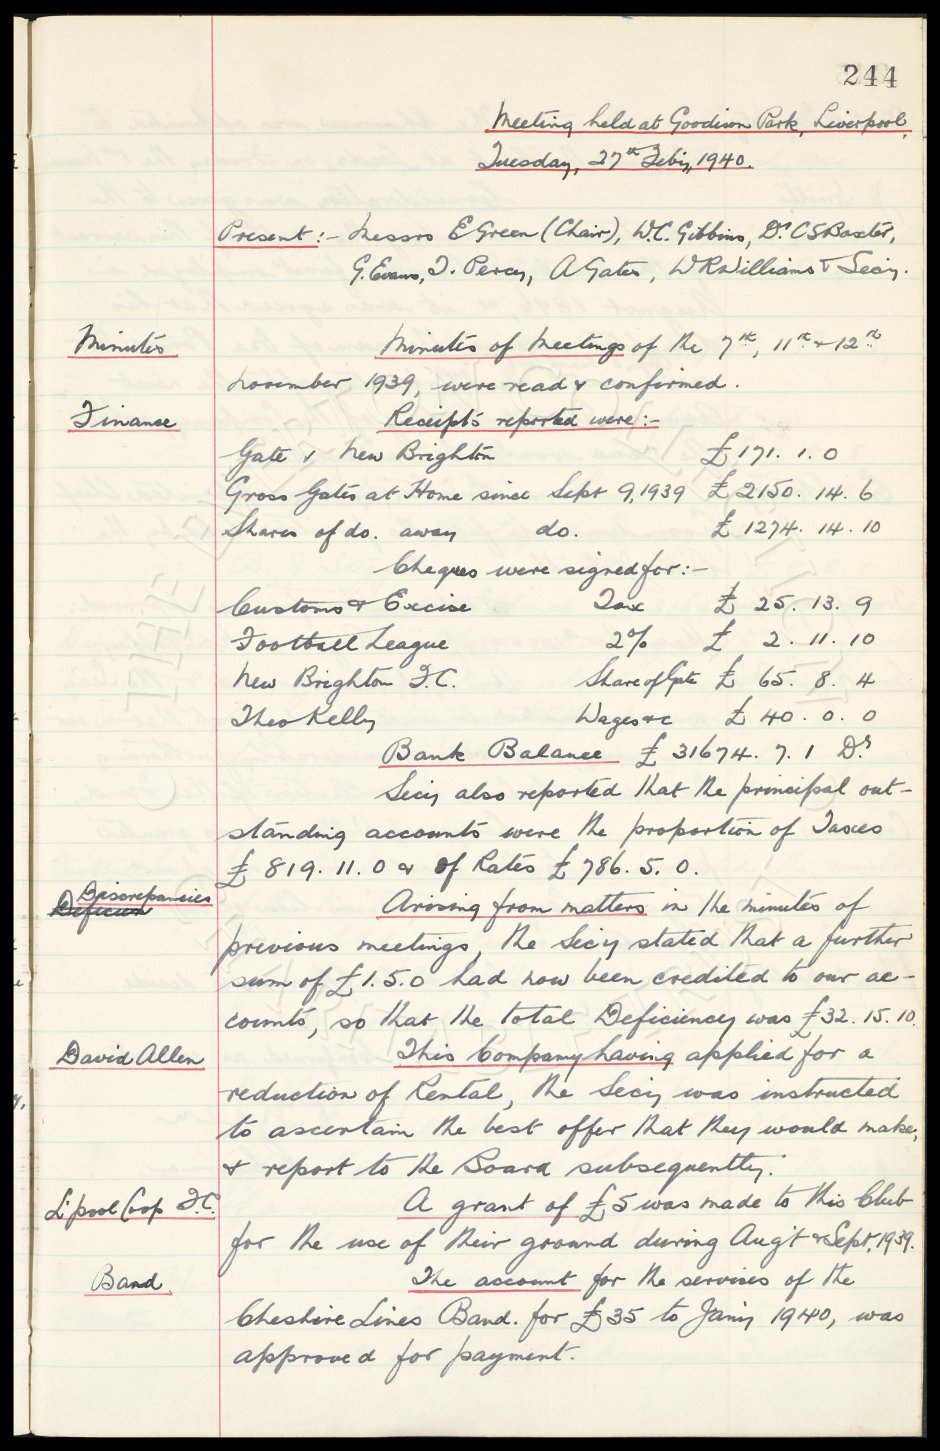 244
Meeting held at Goodison Park, Liverpool,
Tuesday, 27th Feby, 1940.
Present:- Messrs E Green (Chair), W.C. Gibbins, Dr. C S Baxter,
G. Evans, T. Percy, A Gates, W R Williams & Secy.
Minutes Minutes of Meetings of the 7th, 11th & 12th
November 1939, were read & confirmed.
Finance Receipts reported were:-
Gate v New Brighton £171. 1. 0
Gross Gates at Home since Sept 9, 1939 £2150. 14. 6
Shares of do. away do. £1274. 14. 10
Cheques were signed for:-
Customs & Excise Tax £ 25. 13. 9
Football League 2% £ 2. 11. 10
New Brighton F.C. Share of Gate £ 65. 8. 4
Theo Kelly Wages &c £ 40. 0. 0
Bank Balance £31674. 7. 1 Dr
Secy also reported that the principal out-
standing accounts were the proportion of Taxes
£819. 11. 0 & of Rates £786. 5. 0.
Discrepancies Arising from matters in the minutes of
previous meetings, the Secy stated that a further
sum of £1. 5. 0 had now been credited to our ac-
counts, so that the total Deficiency was £32. 15. 10.
David Allen This Company having applied for a
reduction of Rental, the Secy was instructed
to ascertain the best offer that they would make,
& report to the Board subsequently.
L'pool Coop F.C. A grant of £5 was made to this Club
for the use of their ground during Aug't & Sept, 1939.
Band. The account for the services of the
Cheshire Lines Band. for £35 to Jany 1940, was
approved for payment.